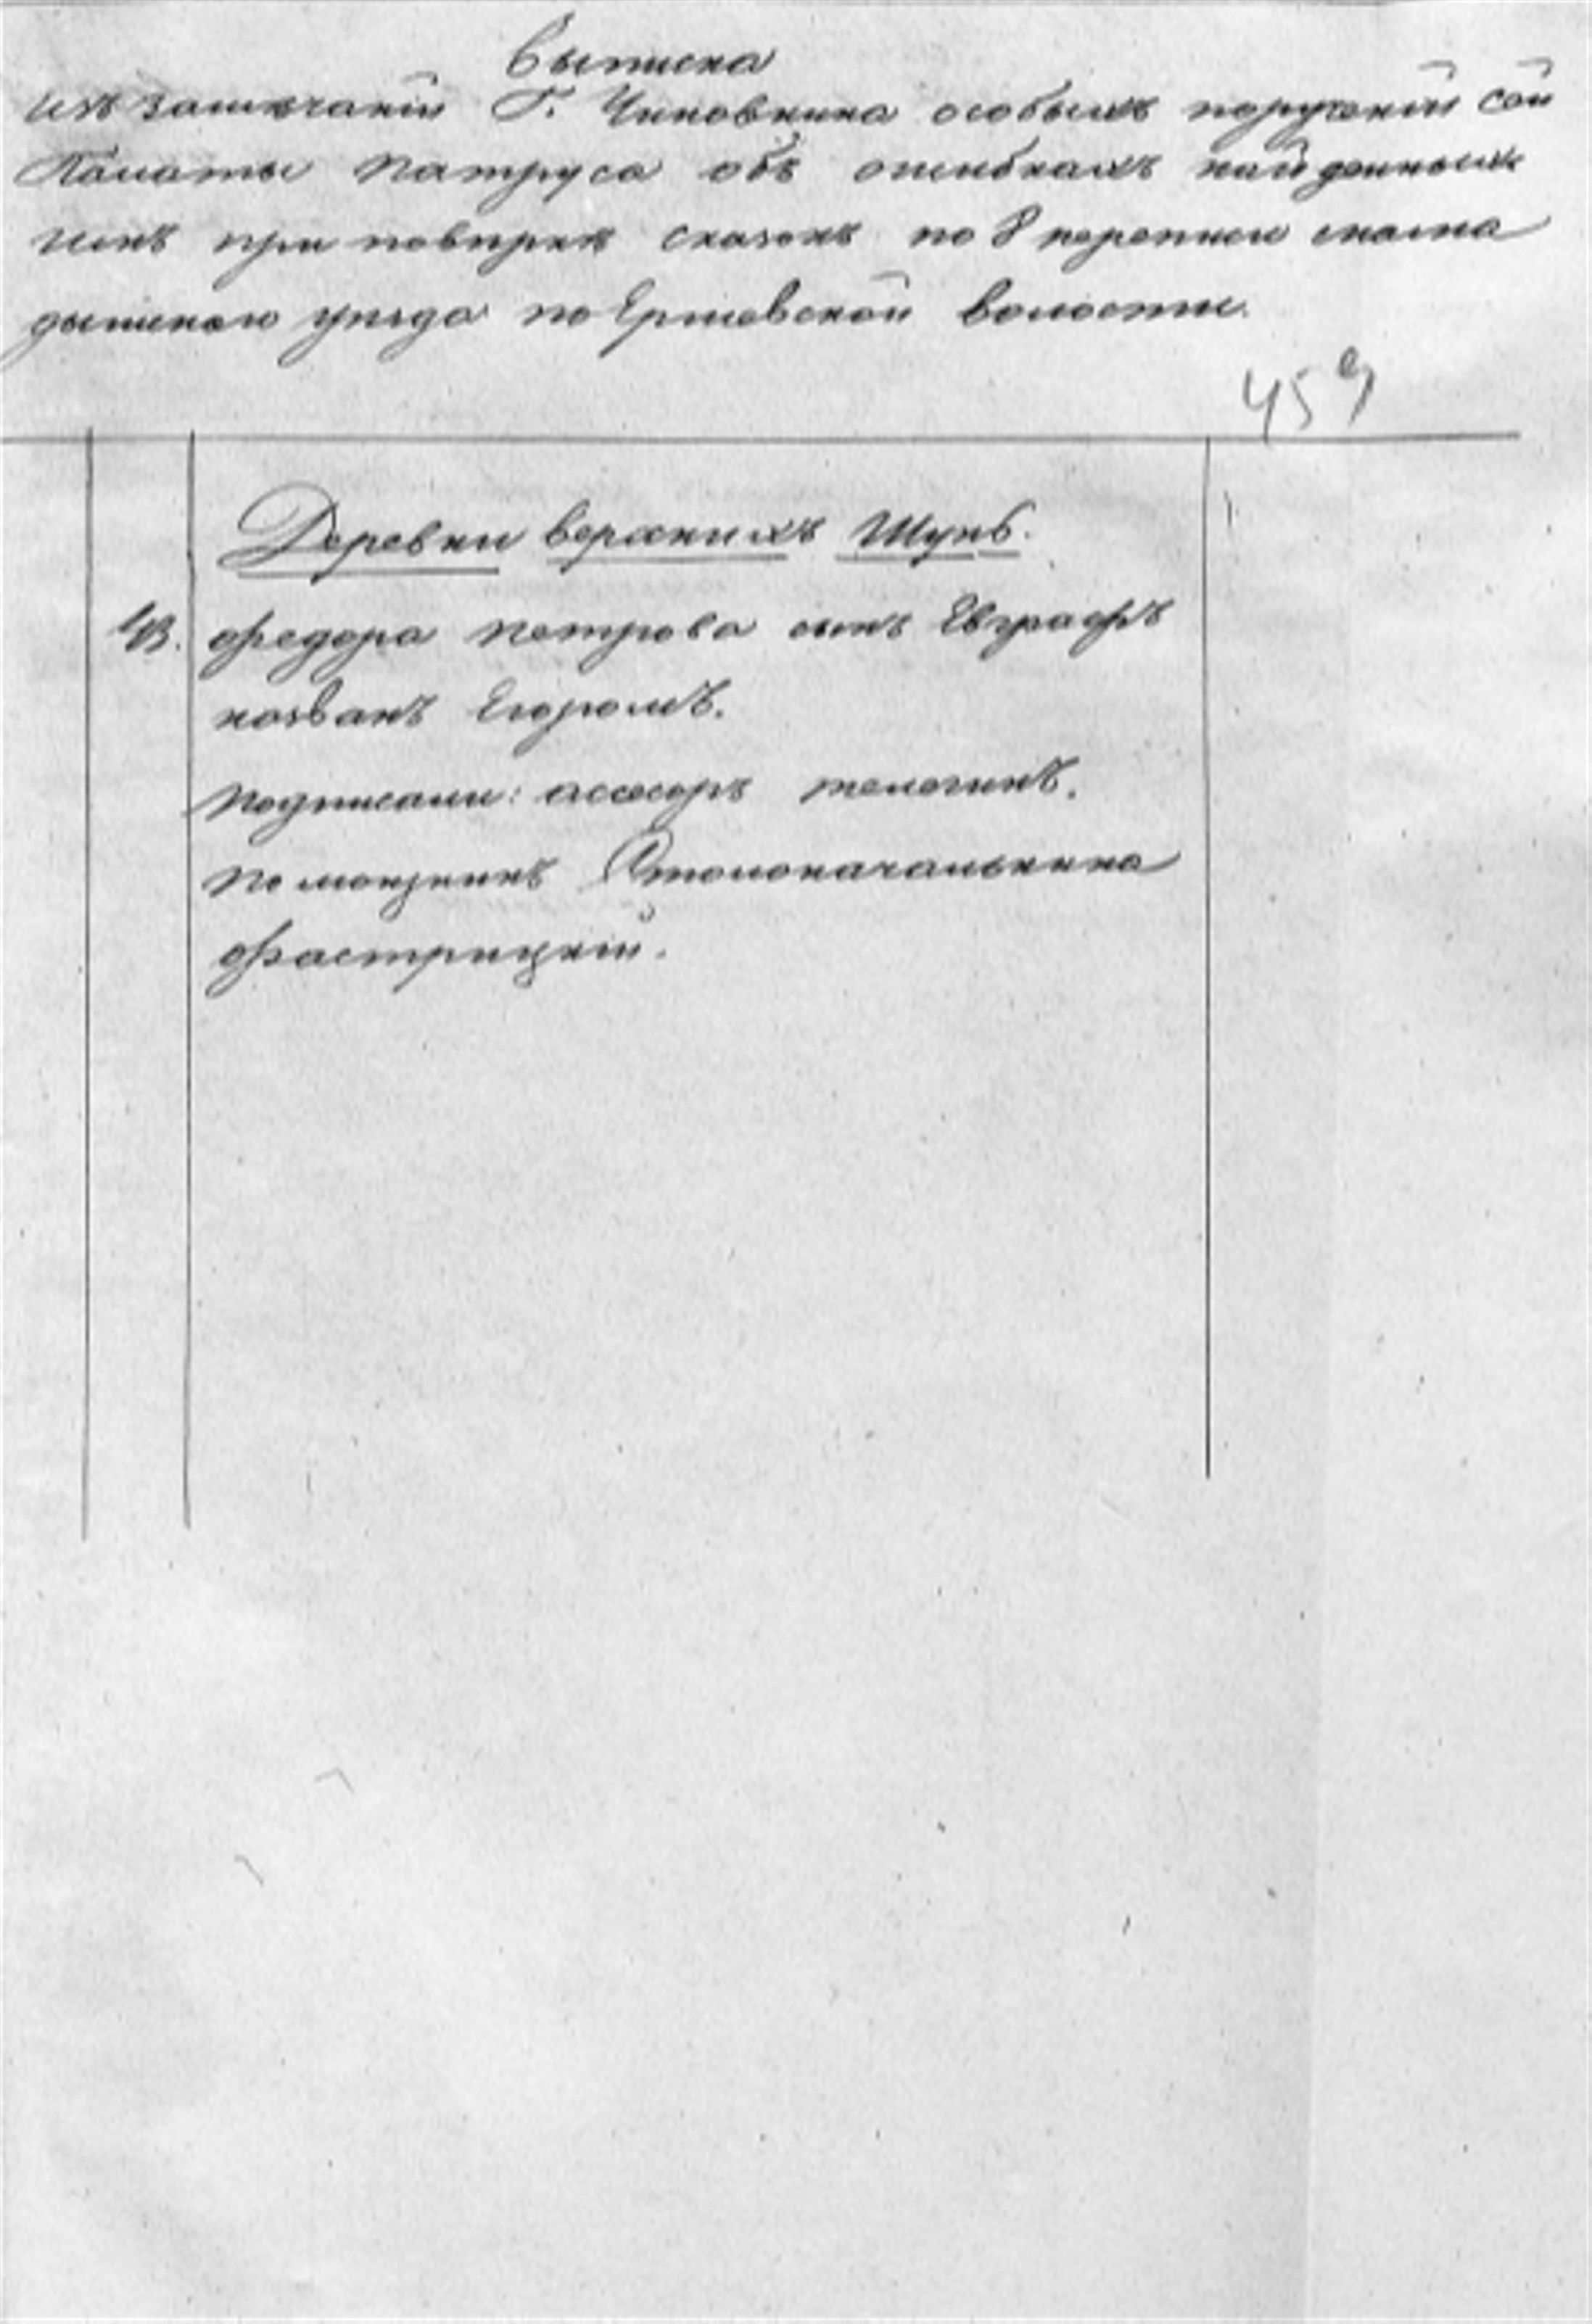 Выписка
изъ замѣчаній Г. Чиновника особыхъ порученій сей
Палаты Патруса объ ошибкахъ найденныхъ
имъ при повѣркѣ сказокъ по 8 переписи мама
дышскаго уѣзда по Ершовской волости.
459
Деревни верхнихъ Шунь.
федора петрова сынъ Евграфъ
названъ Егоромъ.
подписали: асесоръ телегинъ.
помощникъ Столоначальника
фастрицкій.